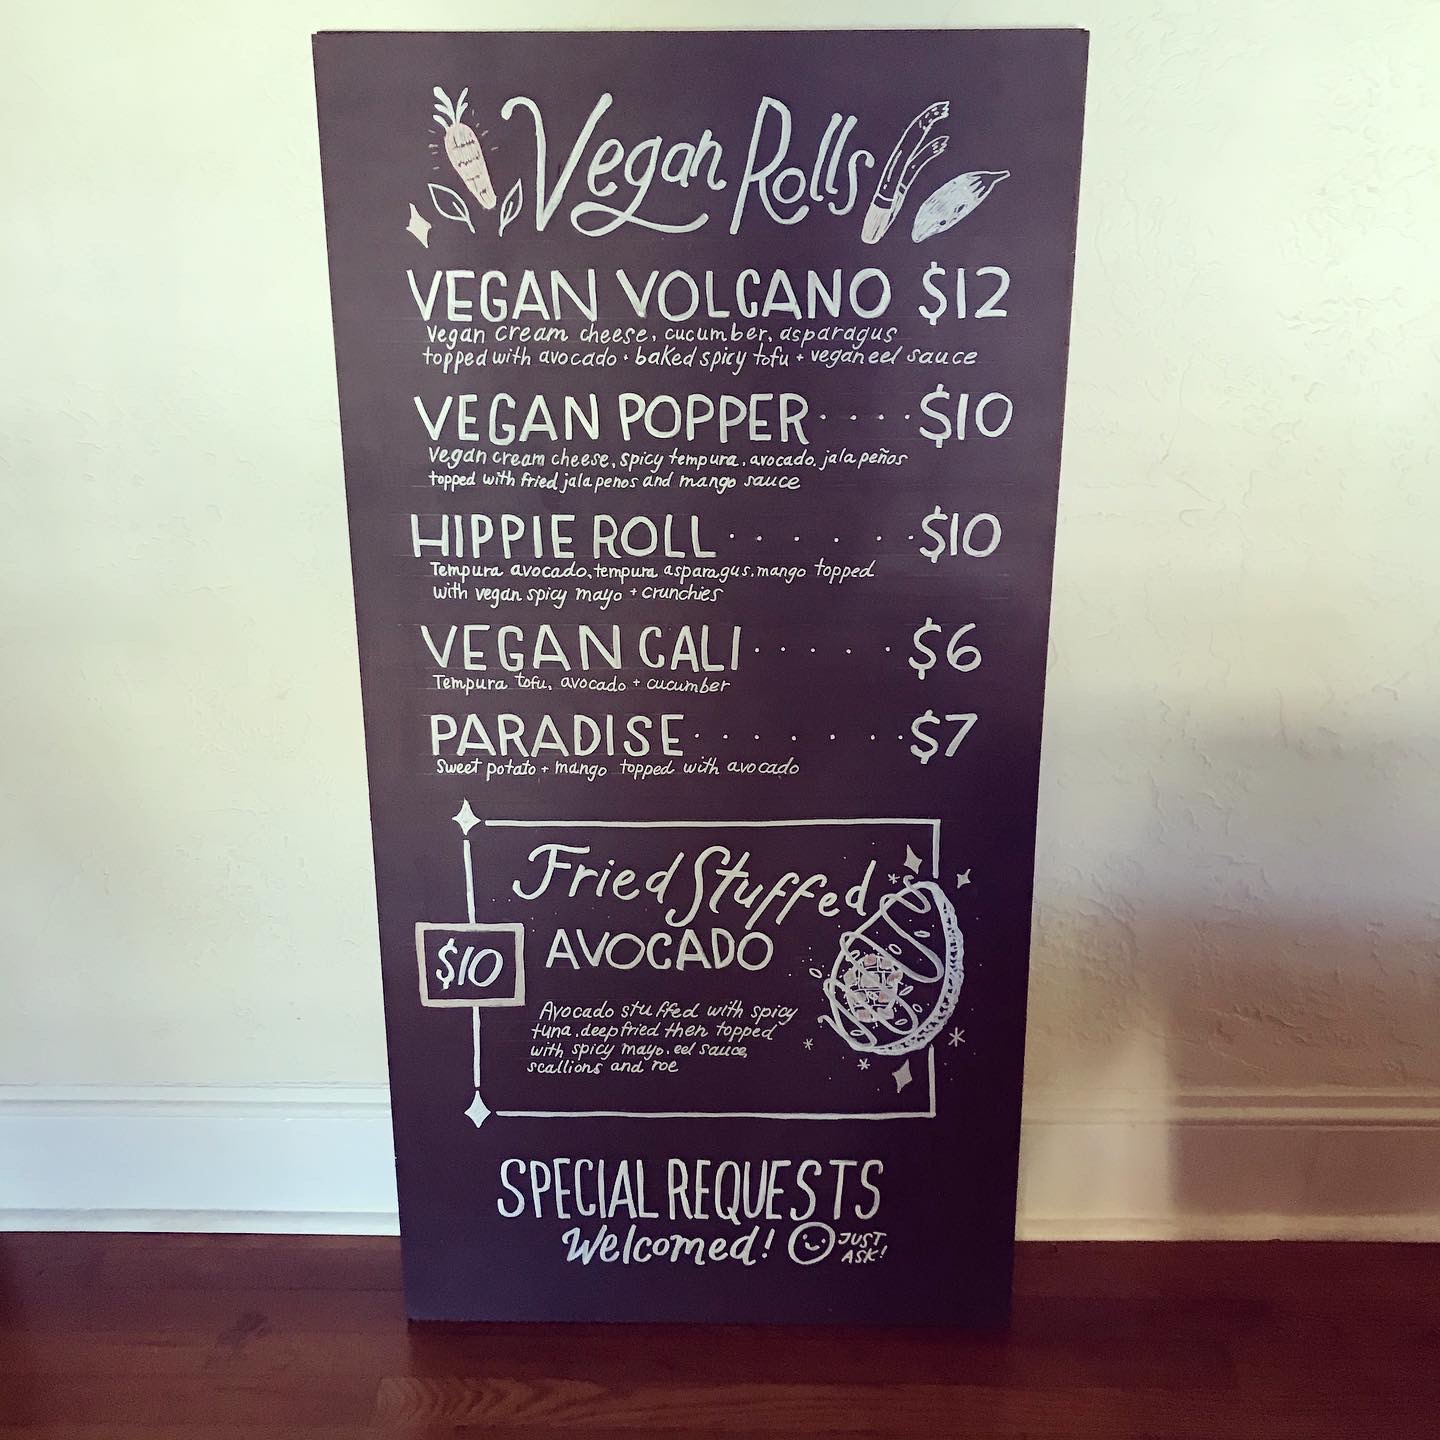 Vegan Rolls
VEGAN VOLCANO $12
Vegan cream cheese, cucumber, asparagus
topped with avocado + baked spicy tofu + vegan eel sauce
VEGAN POPPER ···· $10
Vegan cream cheese, spicy tempura, avocado, jalapeños
topped with fried jalapenos and mango sauce
HIPPIE ROLL ····· $10
Tempura avocado, tempura asparagus, mango topped
with vegan spicy mayo + crunchies
VEGAN CALI ····· $6
Tempura tofu, avocado + cucumber
PARADISE ······· $7
Sweet potato + mango topped with avocado
Fried Stuffed
AVOCADO
$10
Avocado stuffed with spicy
tuna, deep fried then topped
with spicy mayo, eel sauce,
scallions and roe
SPECIAL REQUESTS
Welcomed! JUST
ASK!